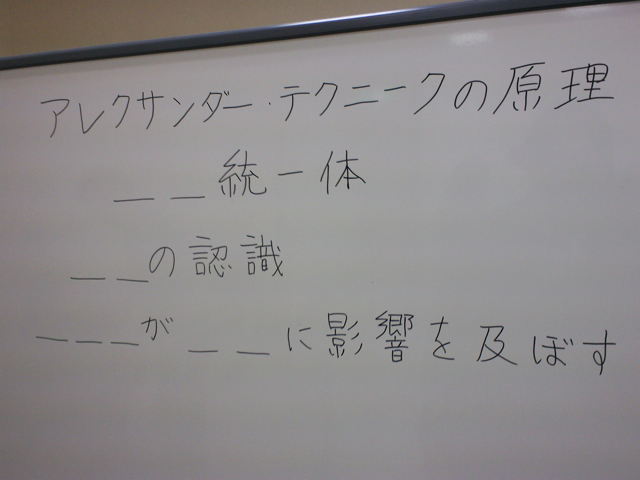 アレクサンダー・テクニークの原理
＿＿統一体
＿＿の認識
＿＿＿が＿＿に影響を及ぼす